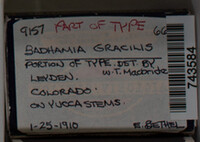 9157 PART OF TYPE
BADHAMIA GRACILIS
PORTION OF TYPE. DET BY
W.T. Macbride
COLORADO.
ON YUCCA STEMS.
1-25-1910 E. BETHEL
743584